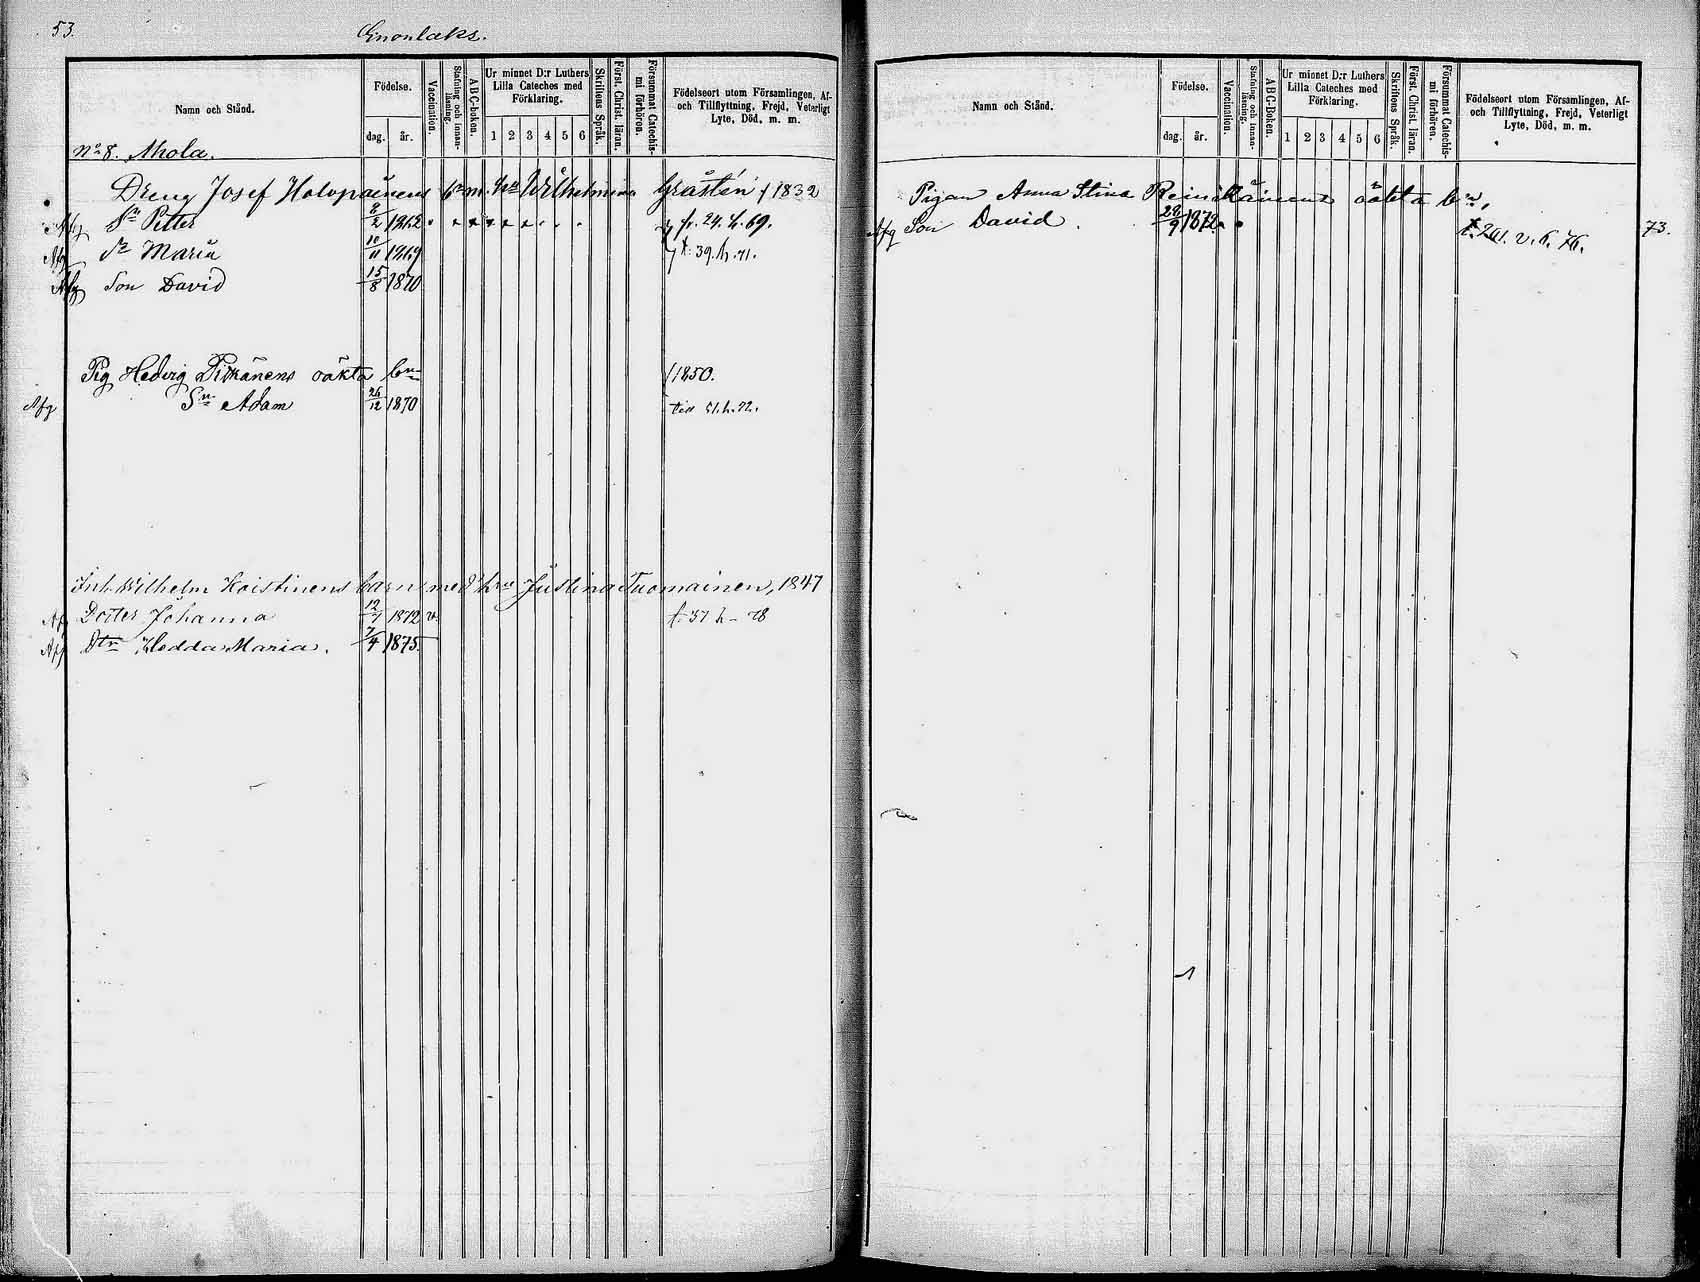 53.
Enonlaks.
Namn och Stånd.
Födelse.
dag. år.
Vaccination.
Stafning och innanläsning.
A B C-boken.
Ur minnet D:r Luthers Lilla Cateches med Förklaring.
1 2 3 4 5 6
Skriftens Språk.
Först. Christ. läran.
Försummat Catechismi förhören.
Födelseort utom Församlingen, Af- och Tillflyttning, Frejd, Veterligt Lyte, Död, m. m.
No 8. Ahola.
Dreng Josef Holopainens bn m. hu Wilhelmina Gråstén f 1832
Afg Sn Petter 8/2 1862 fr. 24. h. 69.
Afg Dr Maria 10/11 1869 t. 39. h. 71.
Afg Son David 15/8 1870
Pig Hedvig Pitkänens oäkta bn f 1850.
Afg Sn Adam 26/12 1870 till 51. h. 72.
Inh Wilhelm Koistinens barn med hu Justina Tuomainen, 1847
Af Dotter Johanna 12/7 1872 v. t. 37 h - 78
Afg Dtr Hedda Maria. 7/4 1875
Namn och Stånd.
Födelse.
dag. år.
Vaccination.
Stafning och innanläsning.
A B C-boken.
Ur minnet D:r Luthers Lilla Cateches med Förklaring.
1 2 3 4 5 6
Skriftens Språk.
Först. Christ. läran.
Försummat Catechismi förhören.
Födelseort utom Församlingen, Af- och Tillflyttning, Frejd, Veterligt Lyte, Död, m. m.
Pigan Anna Stina Reinikainens oäkta bn,
Afg Son David 1872 v. h. 76. 73.